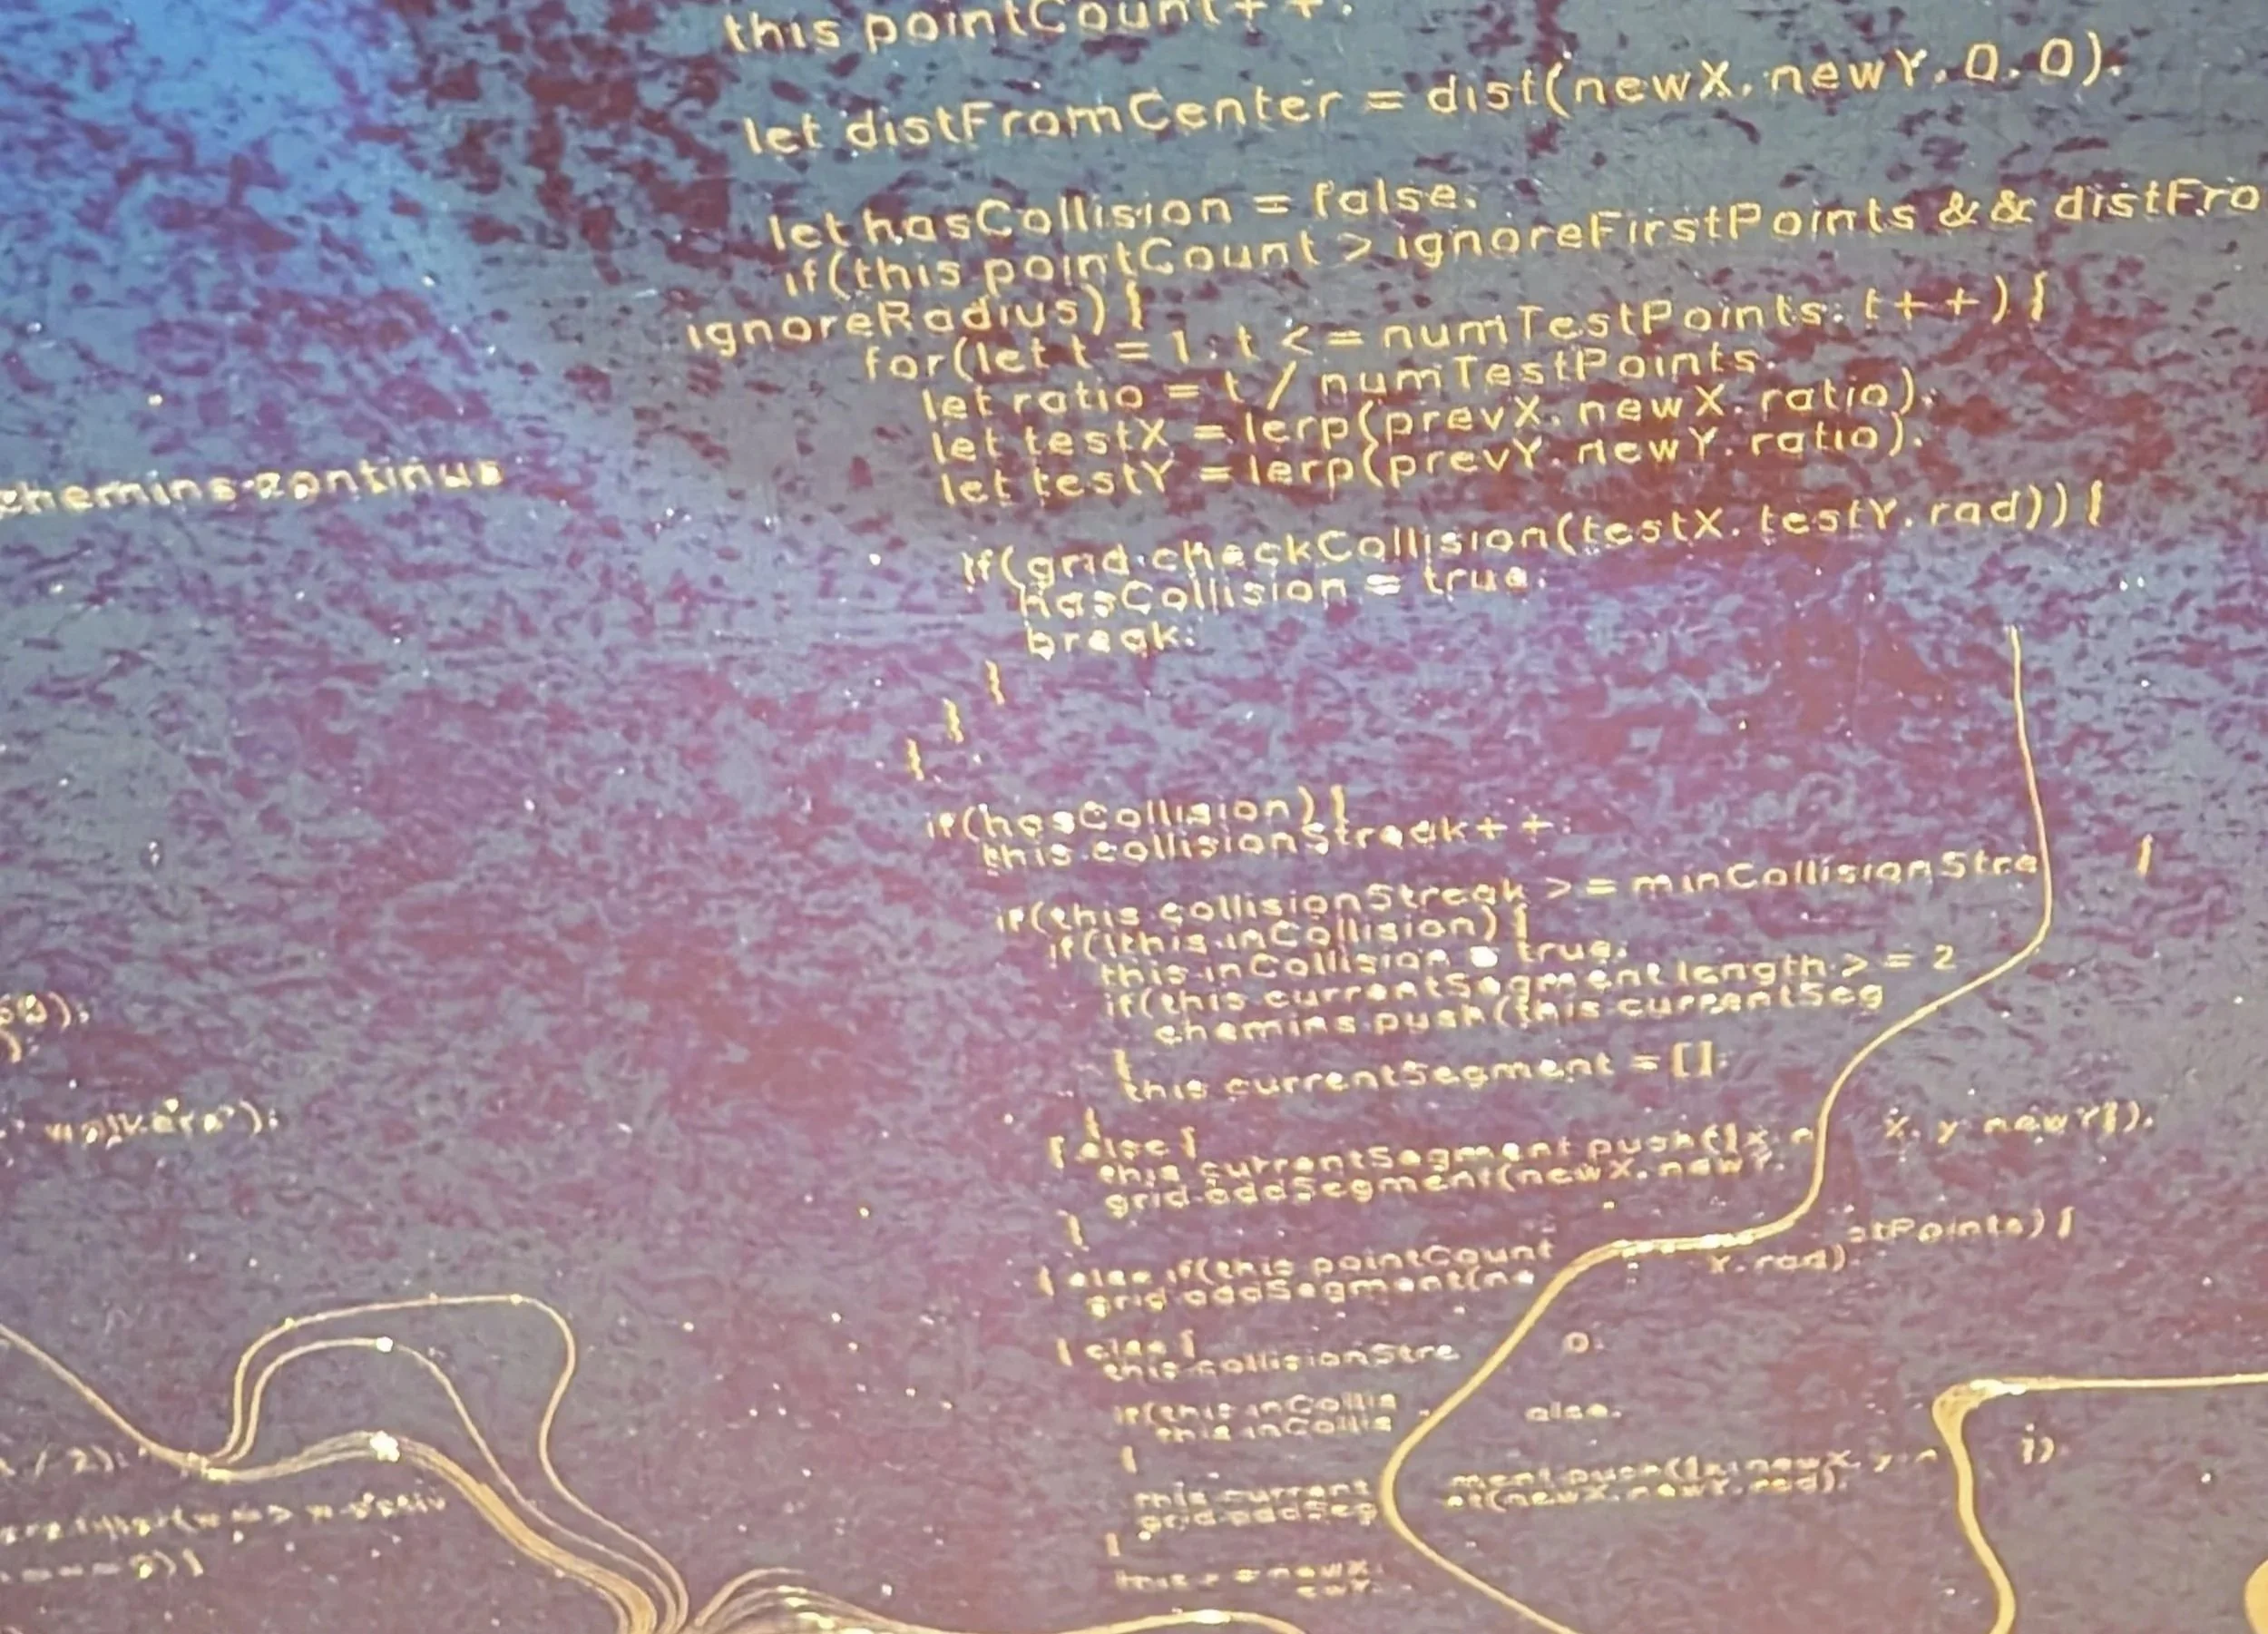 this.pointCount++;
let distFromCenter = dist(newX, newY, 0, 0);
let hasCollision = false;
if(this.pointCount > ignoreFirstPoints && distFro
ignoreRadius) {
for(let t = 1; t <= numTestPoints; t++) {
let ratio = t / numTestPoints;
let testX = lerp(prevX, newX, ratio);
let testY = lerp(prevY, newY, ratio);
chemins continus
if(grid.checkCollision(testX, testY, rad)) {
hasCollision = true;
break;
}
}
}
if(hasCollision) {
this.collisionStreak++;
if(this.collisionStreak >= minCollisionStrea {
if(!this.inCollision) {
this.inCollision = true;
if(this.currentSegment.length >= 2
chemins.push(this.currentSeg
}
this.currentSegment = [];
}
} else {
this.currentSegment.push({x: n X, y: newY});
grid.addSegment(newX, newY,
}
} else if(this.pointCount stPoints) {
grid.addSegment(ne Y, rad);
} else {
this.collisionStre 0;
if(this.inCollis
this.inCollis alse;
}
this.current ment.push({x: newX, y: n
grid.addSeg nt(newX, newY, rad);
/ 2);
}
newX;
ewY;